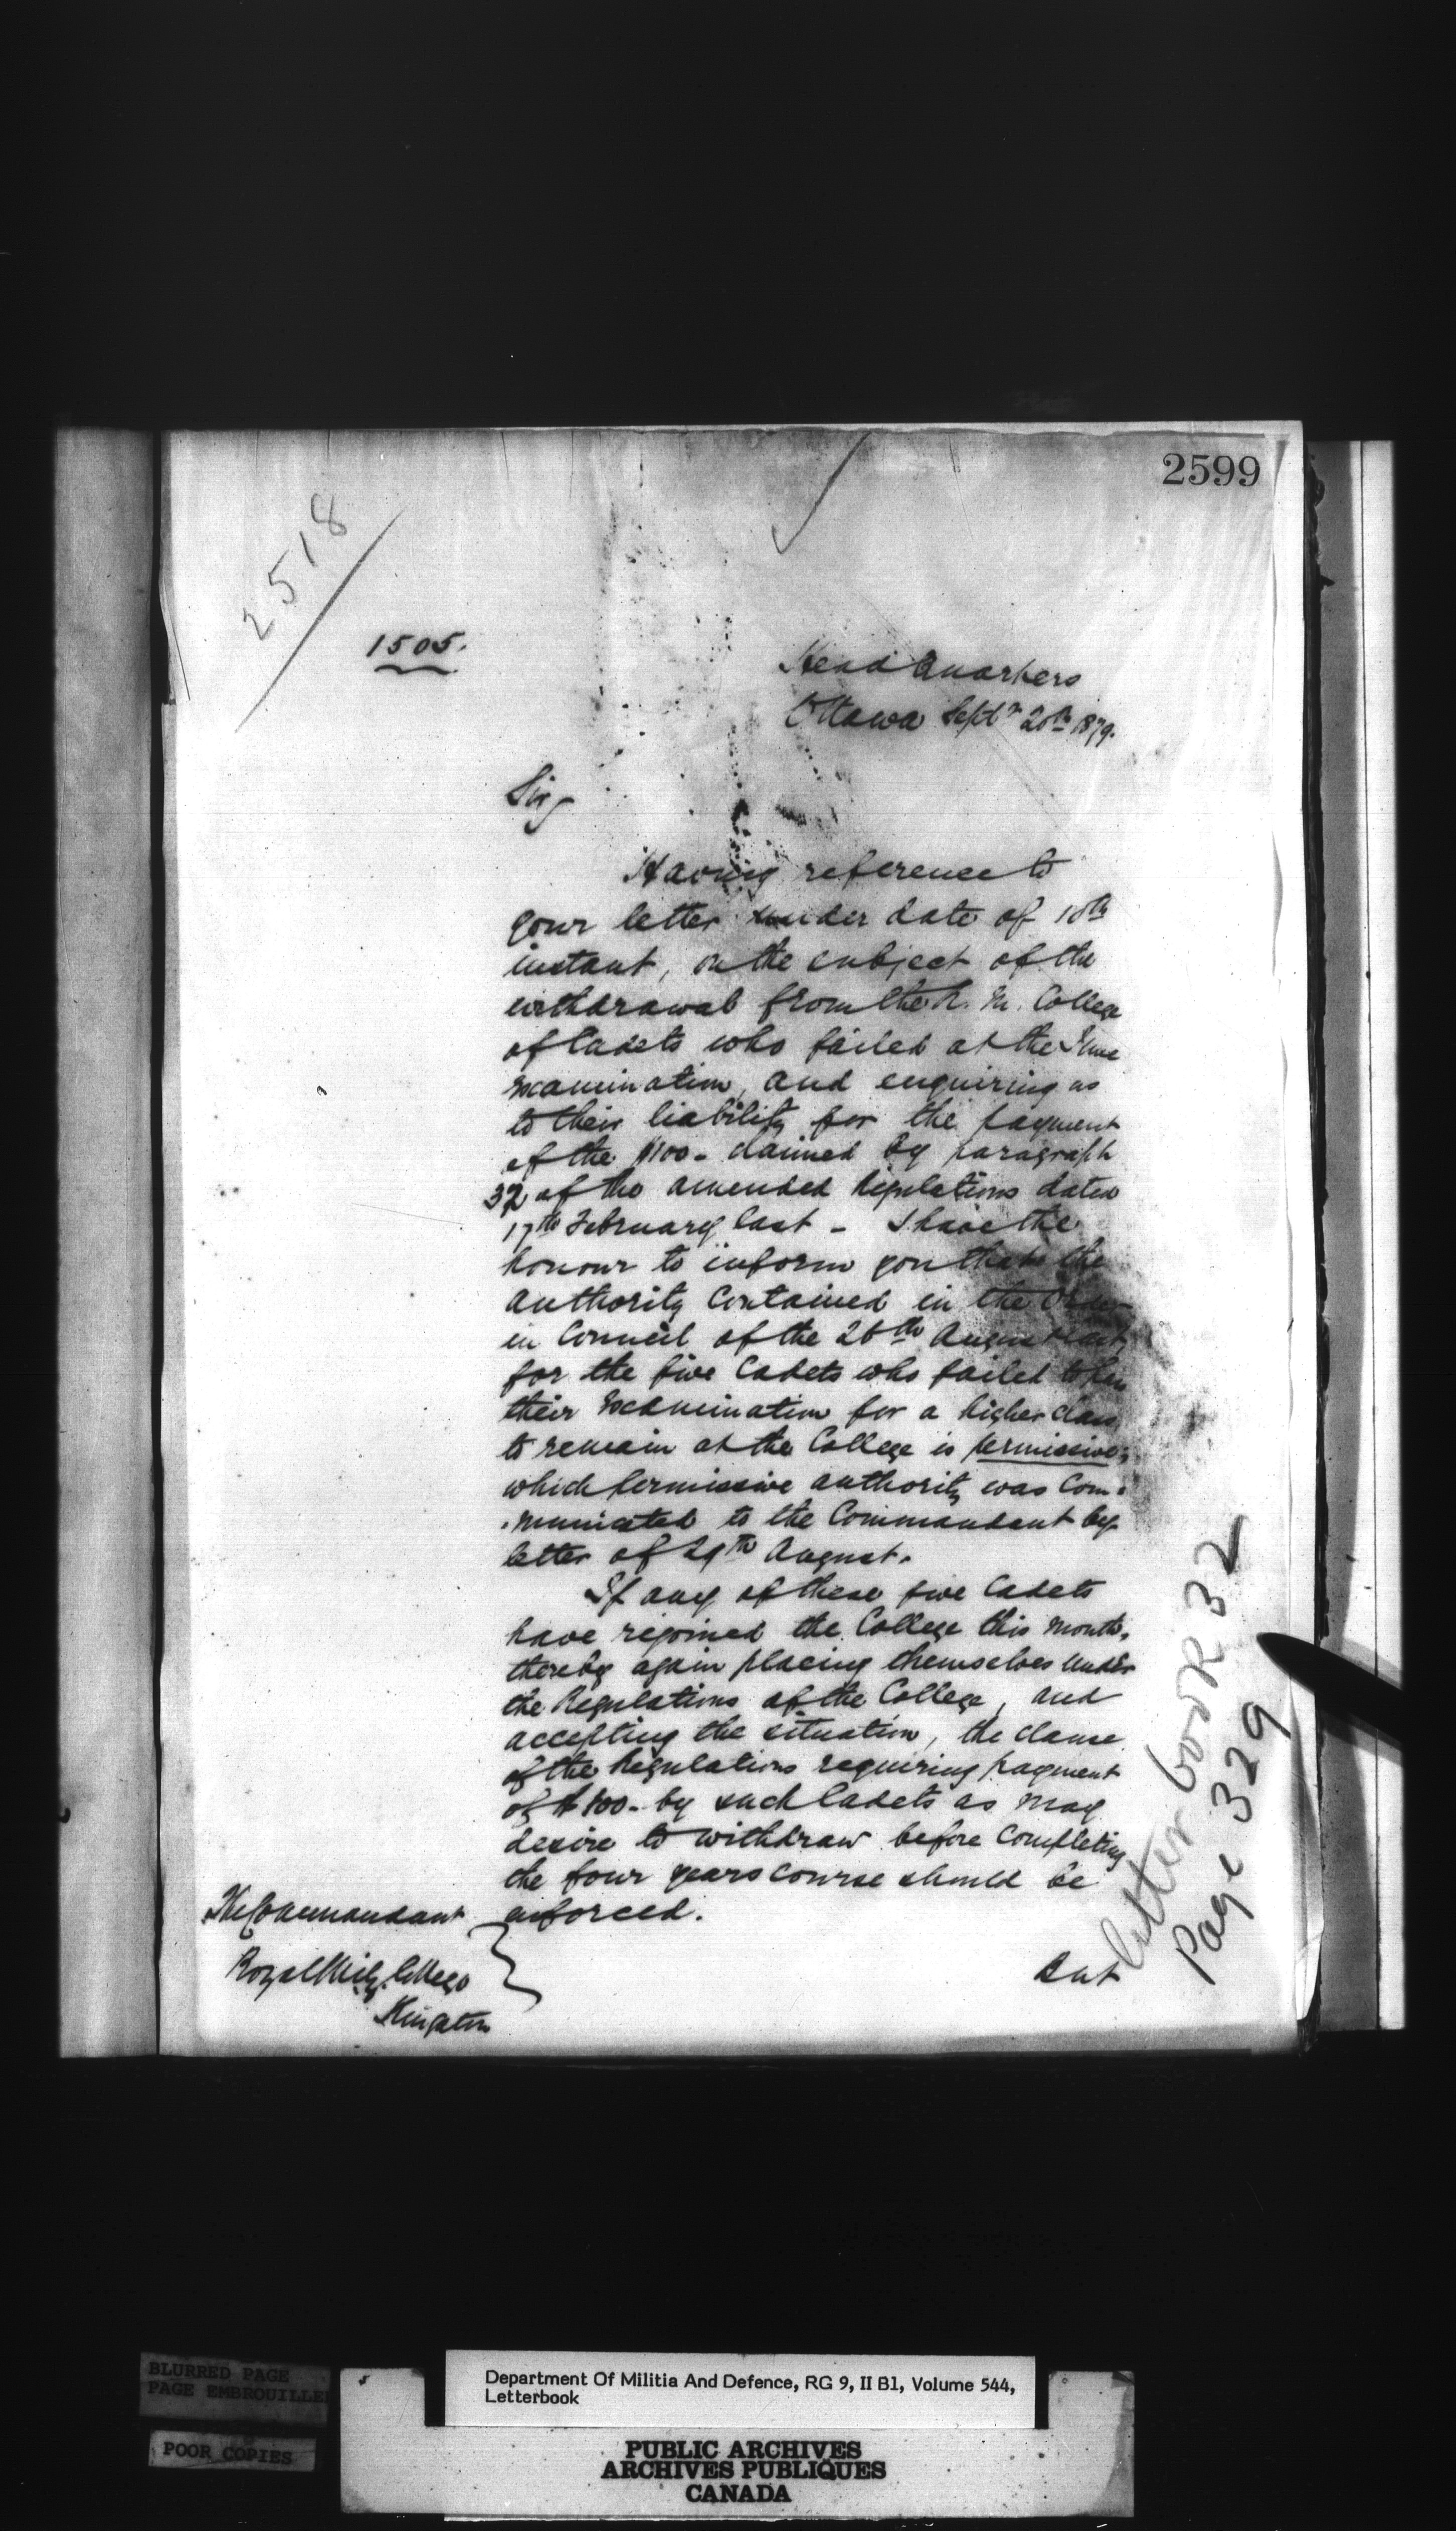 2599
2518
1505.
Head Quarters
Ottawa Septr 20th 1879.
Sir,
Having reference to
your letter under date of 18th
instant, on the subject of the
withdrawal from the R. M. College
of Cadets who failed at the June
examination, and enquiring as
to their liability for the payment
of the $100- claimed by paragraph
32 of the amended Regulations dated
17th February last - I have the
honour to inform you that the
authority contained in the Order
in Council of the 26th August last,
for the five Cadets who failed
their examination for a higher class
to remain at the College is permissive;
which permissive authority was com-
-municated to the Commandant by
letter of 29th August.
If any of these five Cadets
have rejoined the College this month,
thereby again placing themselves under
the Regulations of the College, and
accepting the situation, the clause
of the Regulations requiring payment
of $100- by such Cadets as may
desire to withdraw before completing
the four years course should be
enforced.
The Commandant
Royal Mily. College
Kingston
But
letter book 32
Page 329
BLURRED PAGE
PAGE EMBROUILLEE
POOR COPIES
Department Of Militia And Defence, RG 9, II B1, Volume 544,
Letterbook
PUBLIC ARCHIVES
ARCHIVES PUBLIQUES
CANADA